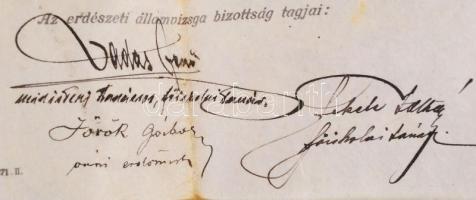 Az erdészeti államvizsga bizottság tagjai:
Vadas Jenő
miniszteri tanácsos, főiskolai tanár.
Török Gábor
Fekete Zoltán
főiskolai tanár
71. II.